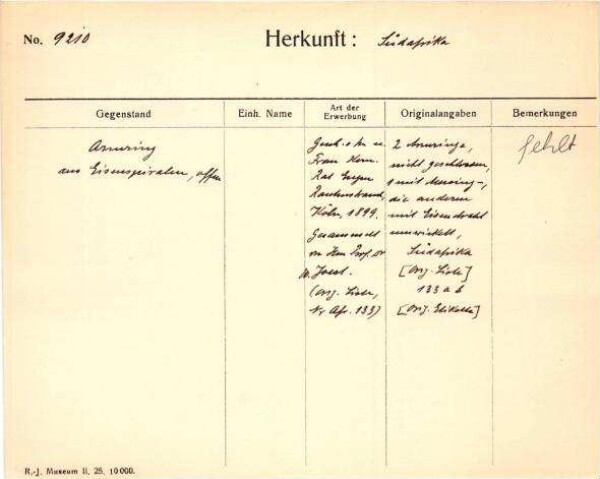 No. 9210
Herkunft: Südafrika
Gegenstand
Einh. Name
Art der Erwerbung
Originalangaben
Bemerkungen
Armring
aus Eisenspiralen, offen
Gesch. v. Hr. u.
Frau Kom.
Rat Eugen
Rautenstrauch,
Köln, 1899.
Gesammelt
von Herr Prof. Dr
W. Joest.
(Orig. Liste,
Nr Afr. 133)
2 Armringe,
nicht geschlossen,
1 mit Messing-,
die anderen
mit Eisendraht
umwickelt,
Südafrika
[Orig. Liste]
133 a b
[Orig. Etikette]
fehlt
R.-J. Museum II. 25. 10000.